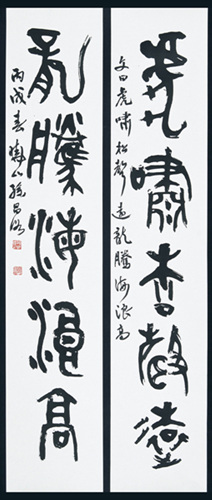 虎嘯松聲遠
文曰虎嘯松聲遠龍騰海浪高
龍騰海浪高
丙戌春